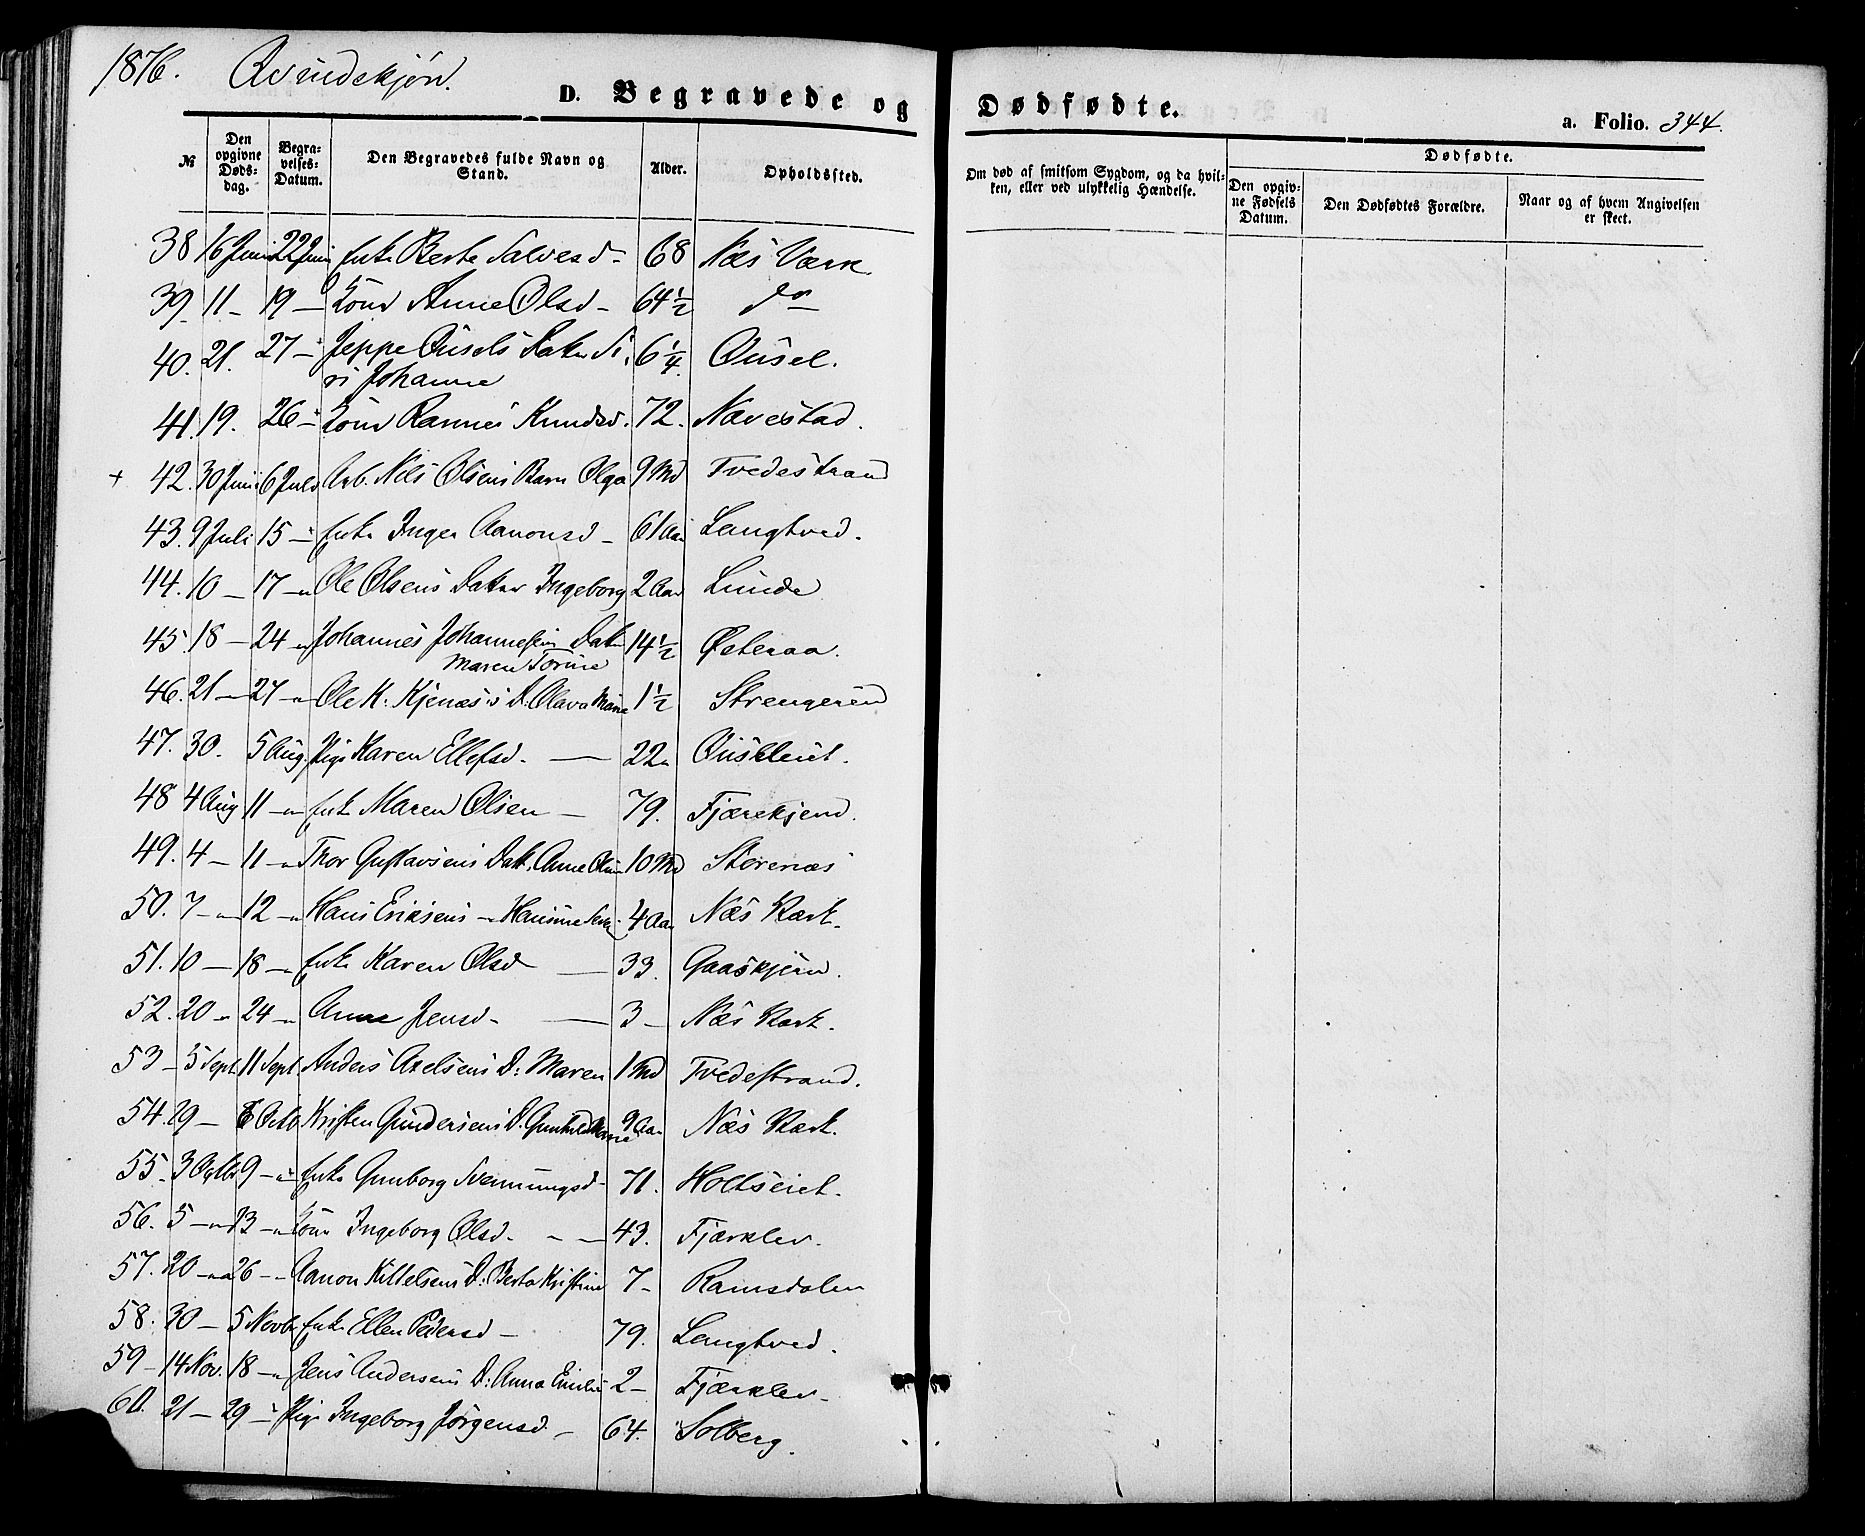 1876. Qvindekjøn.
D. Begravede og Dødfødte.
a. Folio. 344.
№
Den opgivne Døds-dag.
Begra-velses-Datum.
Den Begravedes fulde Navn og Stand.
Alder.
Opholdssted.
Om død af smitsom Sygdom, og da hvil-ken, eller ved ulykkelig Hændelse.
Dødfødte.
Den opgiv-ne Fødsels Datum.
Den Dødfødtes Forældre.
Naar og af hvem Angivelsen er skeet.
38 16 Juni 22 Juni Enke Berte Salvesd - 68 Næs Værk
39 11 - 19 - Kone Anne Olsd - 64 1/2 do -
40. 21. 27 - Jeppe Ousels Datter Si- 6 1/4. Ousel.
ri Johanne
41. 19. 26 - Kone Knudsd. 72. Navestad.
+ 42. 30 Juni 6 Juli Arb. Nils Olsens Barn Olga 9 Md Tvedestrand
43. 9 Juli 15 - Enke Inger Aanonsd - 61 Aar Langtved.
44. 10 - 17 - Ole Olsens Datter Ingeborg 2 Aar Lunde
45. 18 - 24 - Johannes Johannesens Datter 14 1/2 Østeraa.
Maren Torine
46. 21 - 27 - Ole K. Kjenæs's D. Olava Marie 1 1/2 Strengereid
47. 30. 5 Aug. Pige Karen Ellefsd. - 22 Ouslleiet.
48 4 Aug 11 - Enke Maren Olsen - 79. Fjærekjend.
49. 4 - 11 - Thor Gustavsens Datt. Anne 10 Md Storenæs
50. 7 - 12 - Hans Eriksens - Hansine 4 Aar Næs Værk.
51. 10 - 18 - Enke Karen Olsd - 33. Gaaskjern.
52. 20 - 24 - Anne Jensd - 3 - Næs Værk.
53 - 5 Sept 11 Sept. Anders Axelsens D: Maren 1 Md Tvedestrand.
54. 29 - 6 Octb Kristen Gundersens D. Gunhild Marie 9 Aar Næs Værk.
55. 3 Octbr 9 - Enke Gunborg Svenningsd - 71. Holtseiet.
56. 5 - 13 - Kone Ingeborg Olsd. - - 43. Fjærklev.
57. 20 - 26 - Aanon Kittelsens D: Berta Kristine 7 - Ramsdalen
58. 30 - 5 Novbr Enke Ellen Pedersd - 79. Langtved.
59 - 14 Nov. 18 - Jens Andersens D: Anna Emilie 2 - Fjærklev.
60. 21 - 29 - Pige Ingeborg Jørgensd. - 64. Solberg.